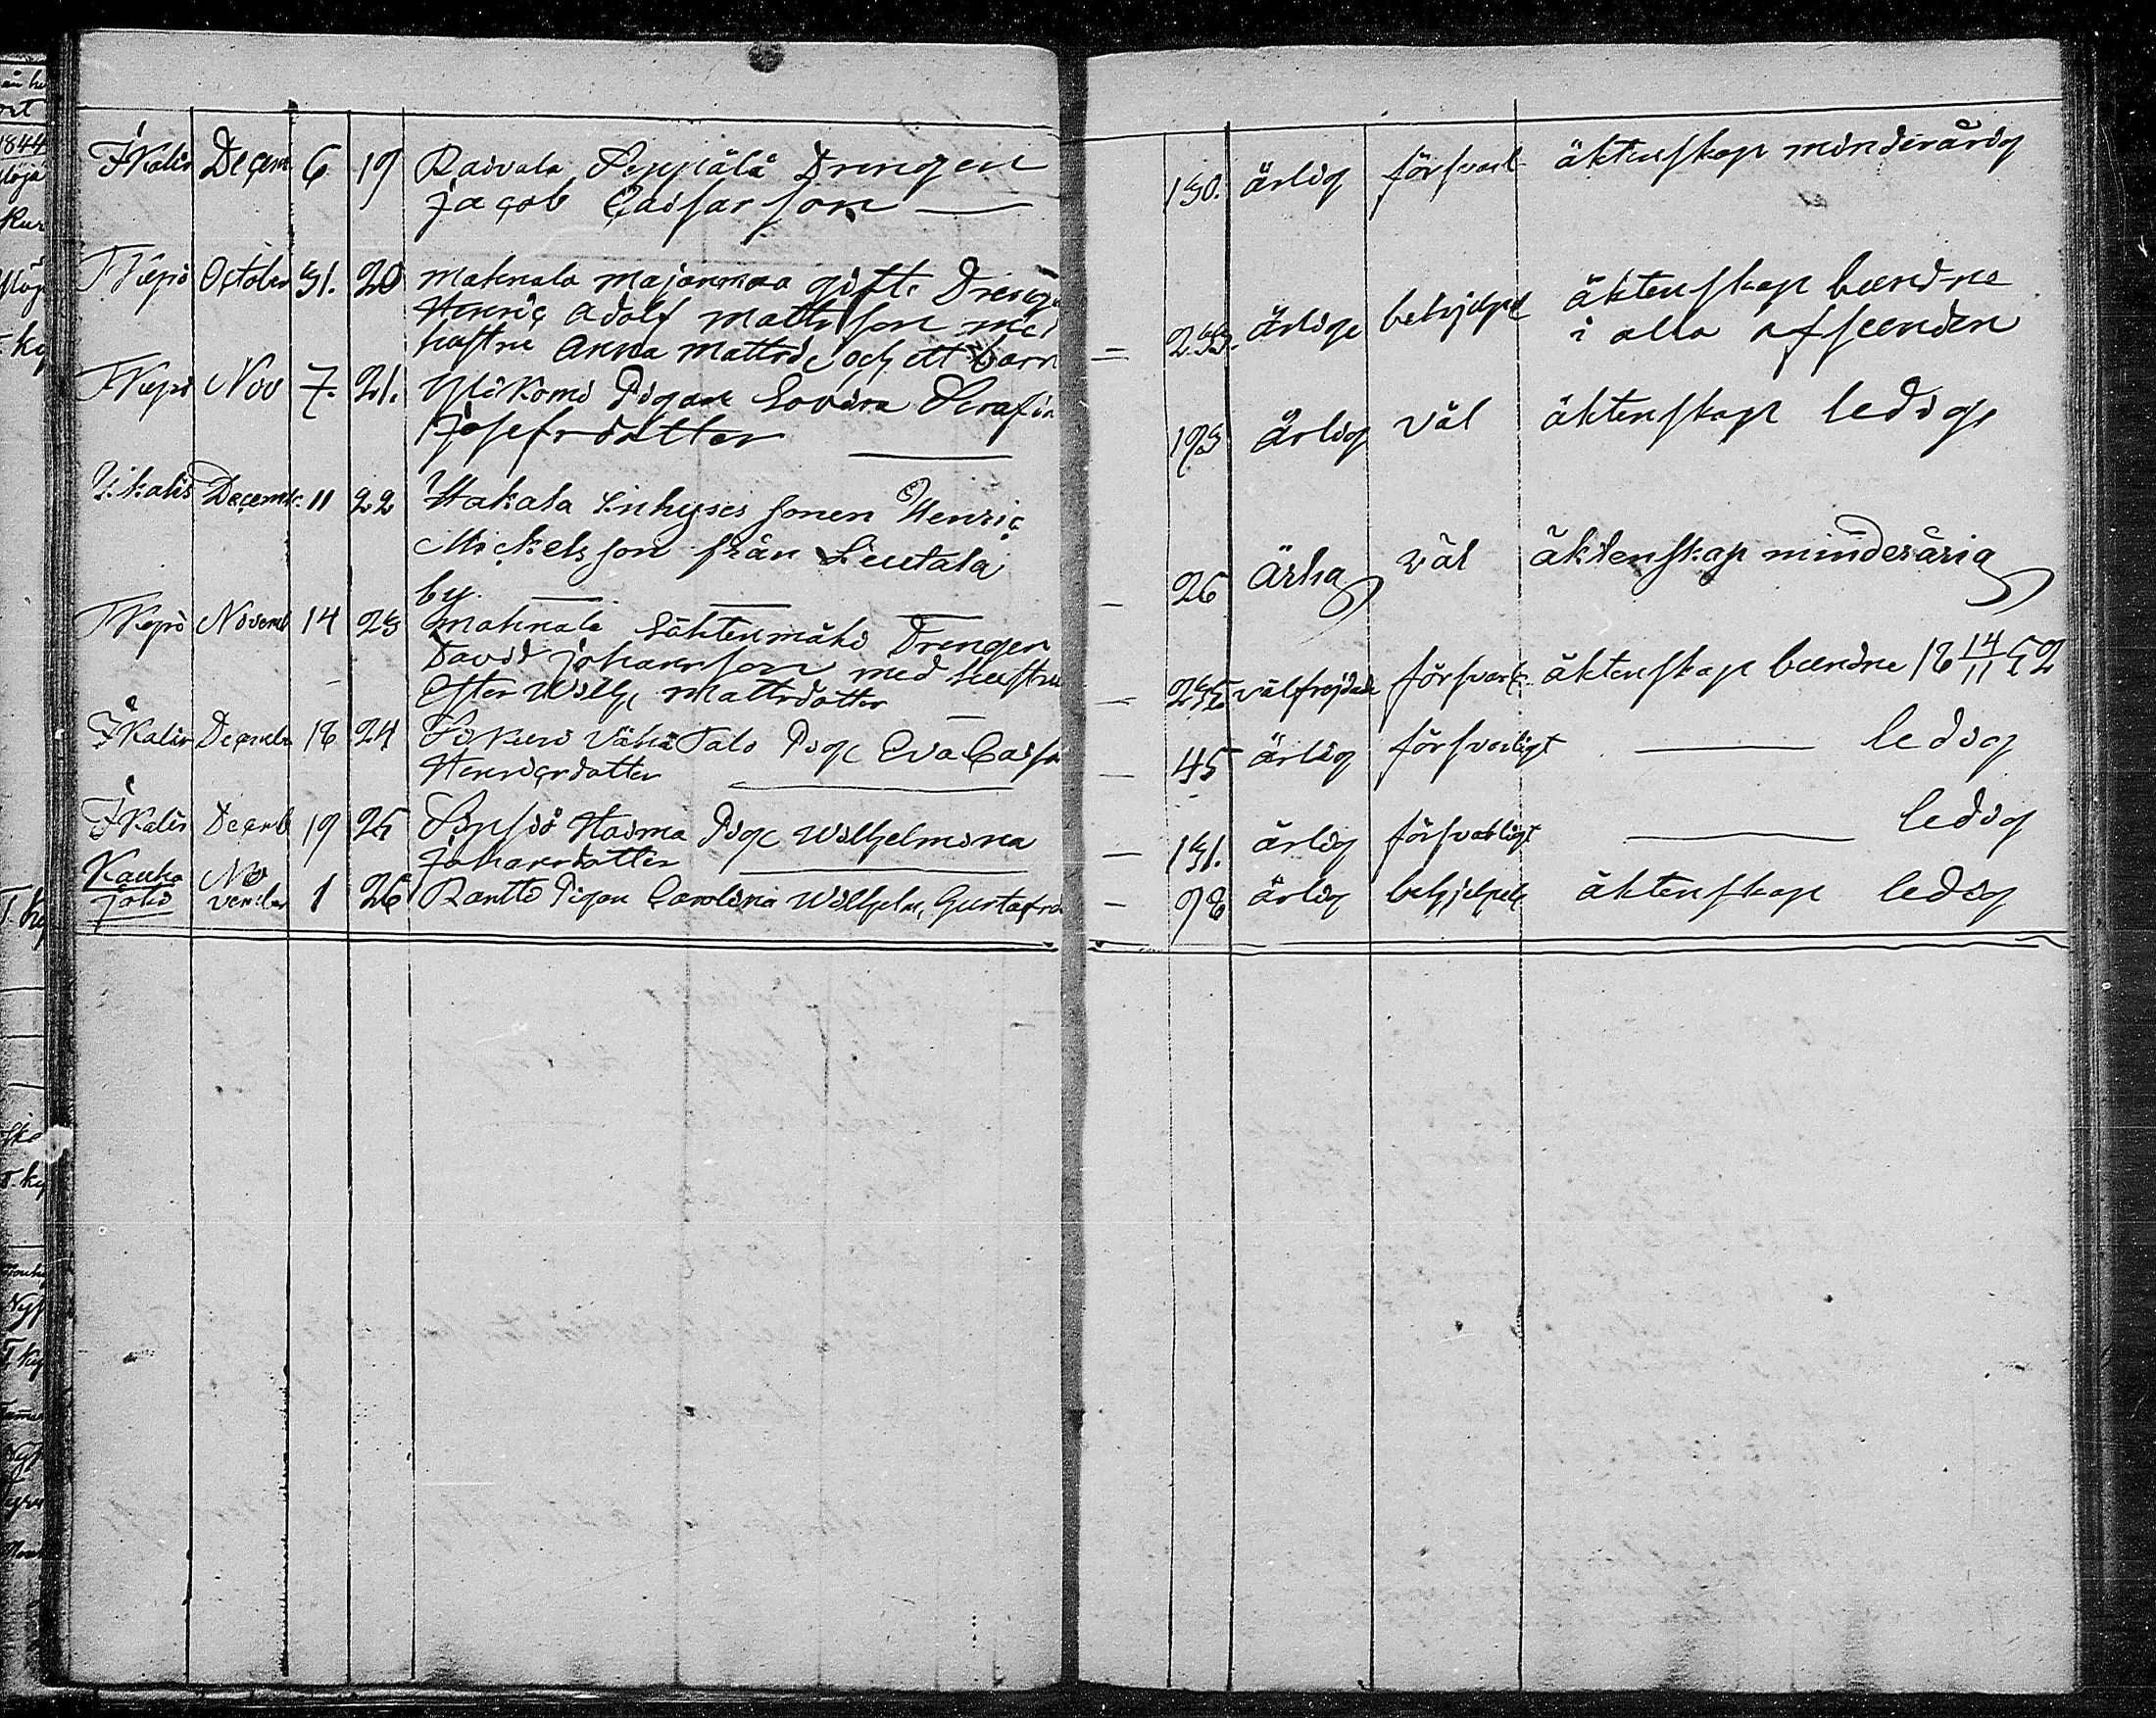 Ikalis Decem 6 19 Raivala Seppälä Drengen
Jacob Caisarson — 130. ärlig försvarl äktenskap minderårig
TKyrö October 31. 20 Mahnala Majanmaa gifte Drengen
Henric Adolf Mattsson med
hustru Anna Mattsd och ett barn — 233. ärlige behjelpel äktenskap bundne
i alla afseenden
TKyrö Nov 7. 21. Ylikomi Pigan Lovisa Serafia
Josefsdotter — 193 ärlig väl äktenskap ledig
Ikalis Decemb. 11 22 Hakala Inhyses sonen Henric
Mickelsson från Leutala
by. — 26 Ärlig väl äktenskap minderårig
TKyrö Novemb 14 23 Mahnala Lähtenmäki Drengen
David Johansson med hustru
Ester Wilh. Mattsdotter — 235 välfrejdade försvarl. äktenskap bundne 18 14/11 52
Ikalis Decemb 18 24 Sikuri Vähä Talo Pig. Eva Caisa
Henricsdotter — 45 ärlig försvarligt — ledig
Ikalis Decemb 19 25 Sipsiö Haima Pig. Wilhelmina
Johansdotter — 131. ärlig försvarligt — ledig
Kauha
joki No
vember 1 26 Rantto Pigan Carolina Wilhelm. Gustafsd — 98 ärlig behjelpel äktenskap ledig
1844